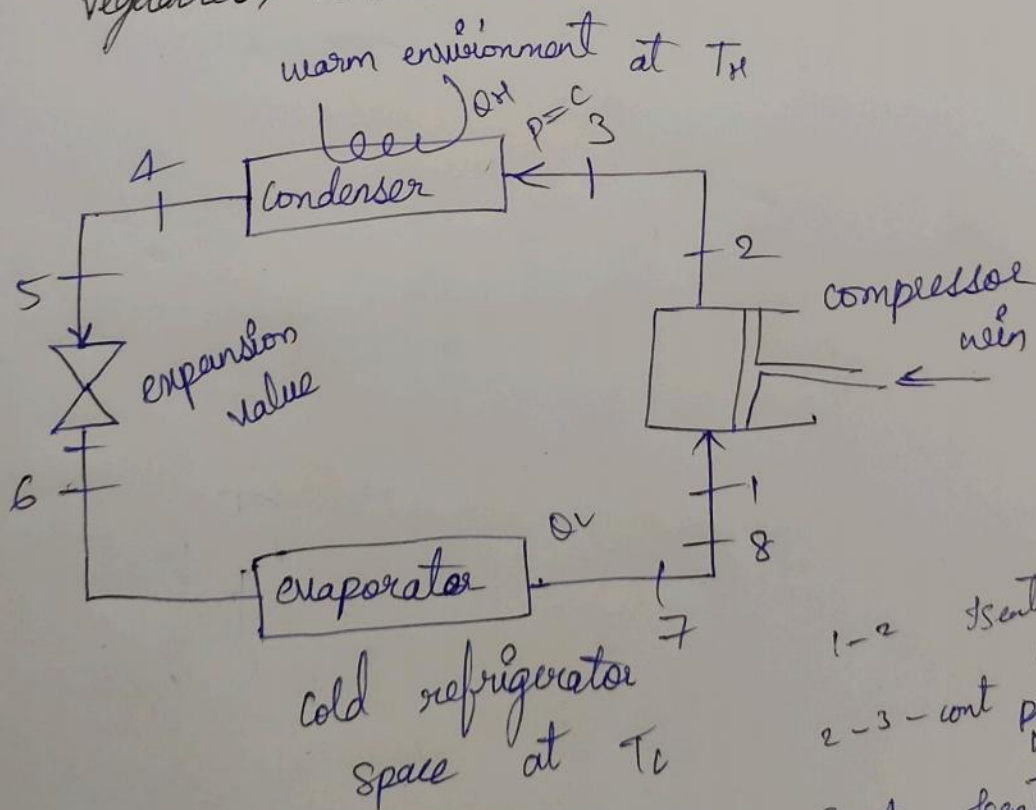 warm environment at TH
QH
P=C
3
4
condenser
2
5
compressor
win
expansion
value
6
1
8
evaporator
7
cold refrigerator
space at TC
1-2
2-3-cont P